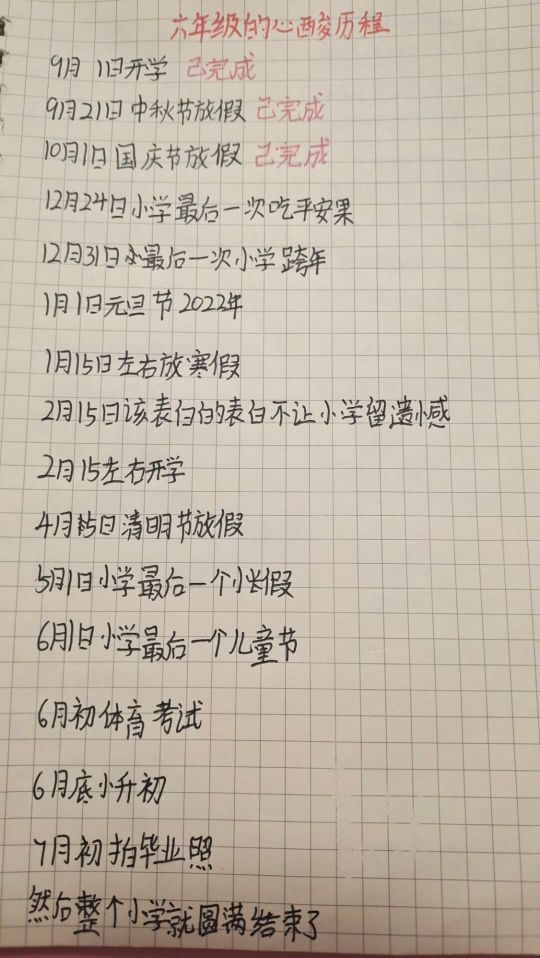 六年级的心酸历程
9月1日开学 已完成
9月21日中秋节放假 已完成
10月1日国庆节放假 已完成
12月24日小学最后一次吃平安果
12月31日最后一次小学跨年
1月1日元旦节2022年
1月15日左右放寒假
2月15日该表白的表白不让小学留遗憾
2月15左右开学
4月5日清明节放假
5月1日小学最后一个小长假
6月1日小学最后一个儿童节
6月初体育考试
6月底小升初
7月初拍毕业照
然后整个小学就圆满结束了